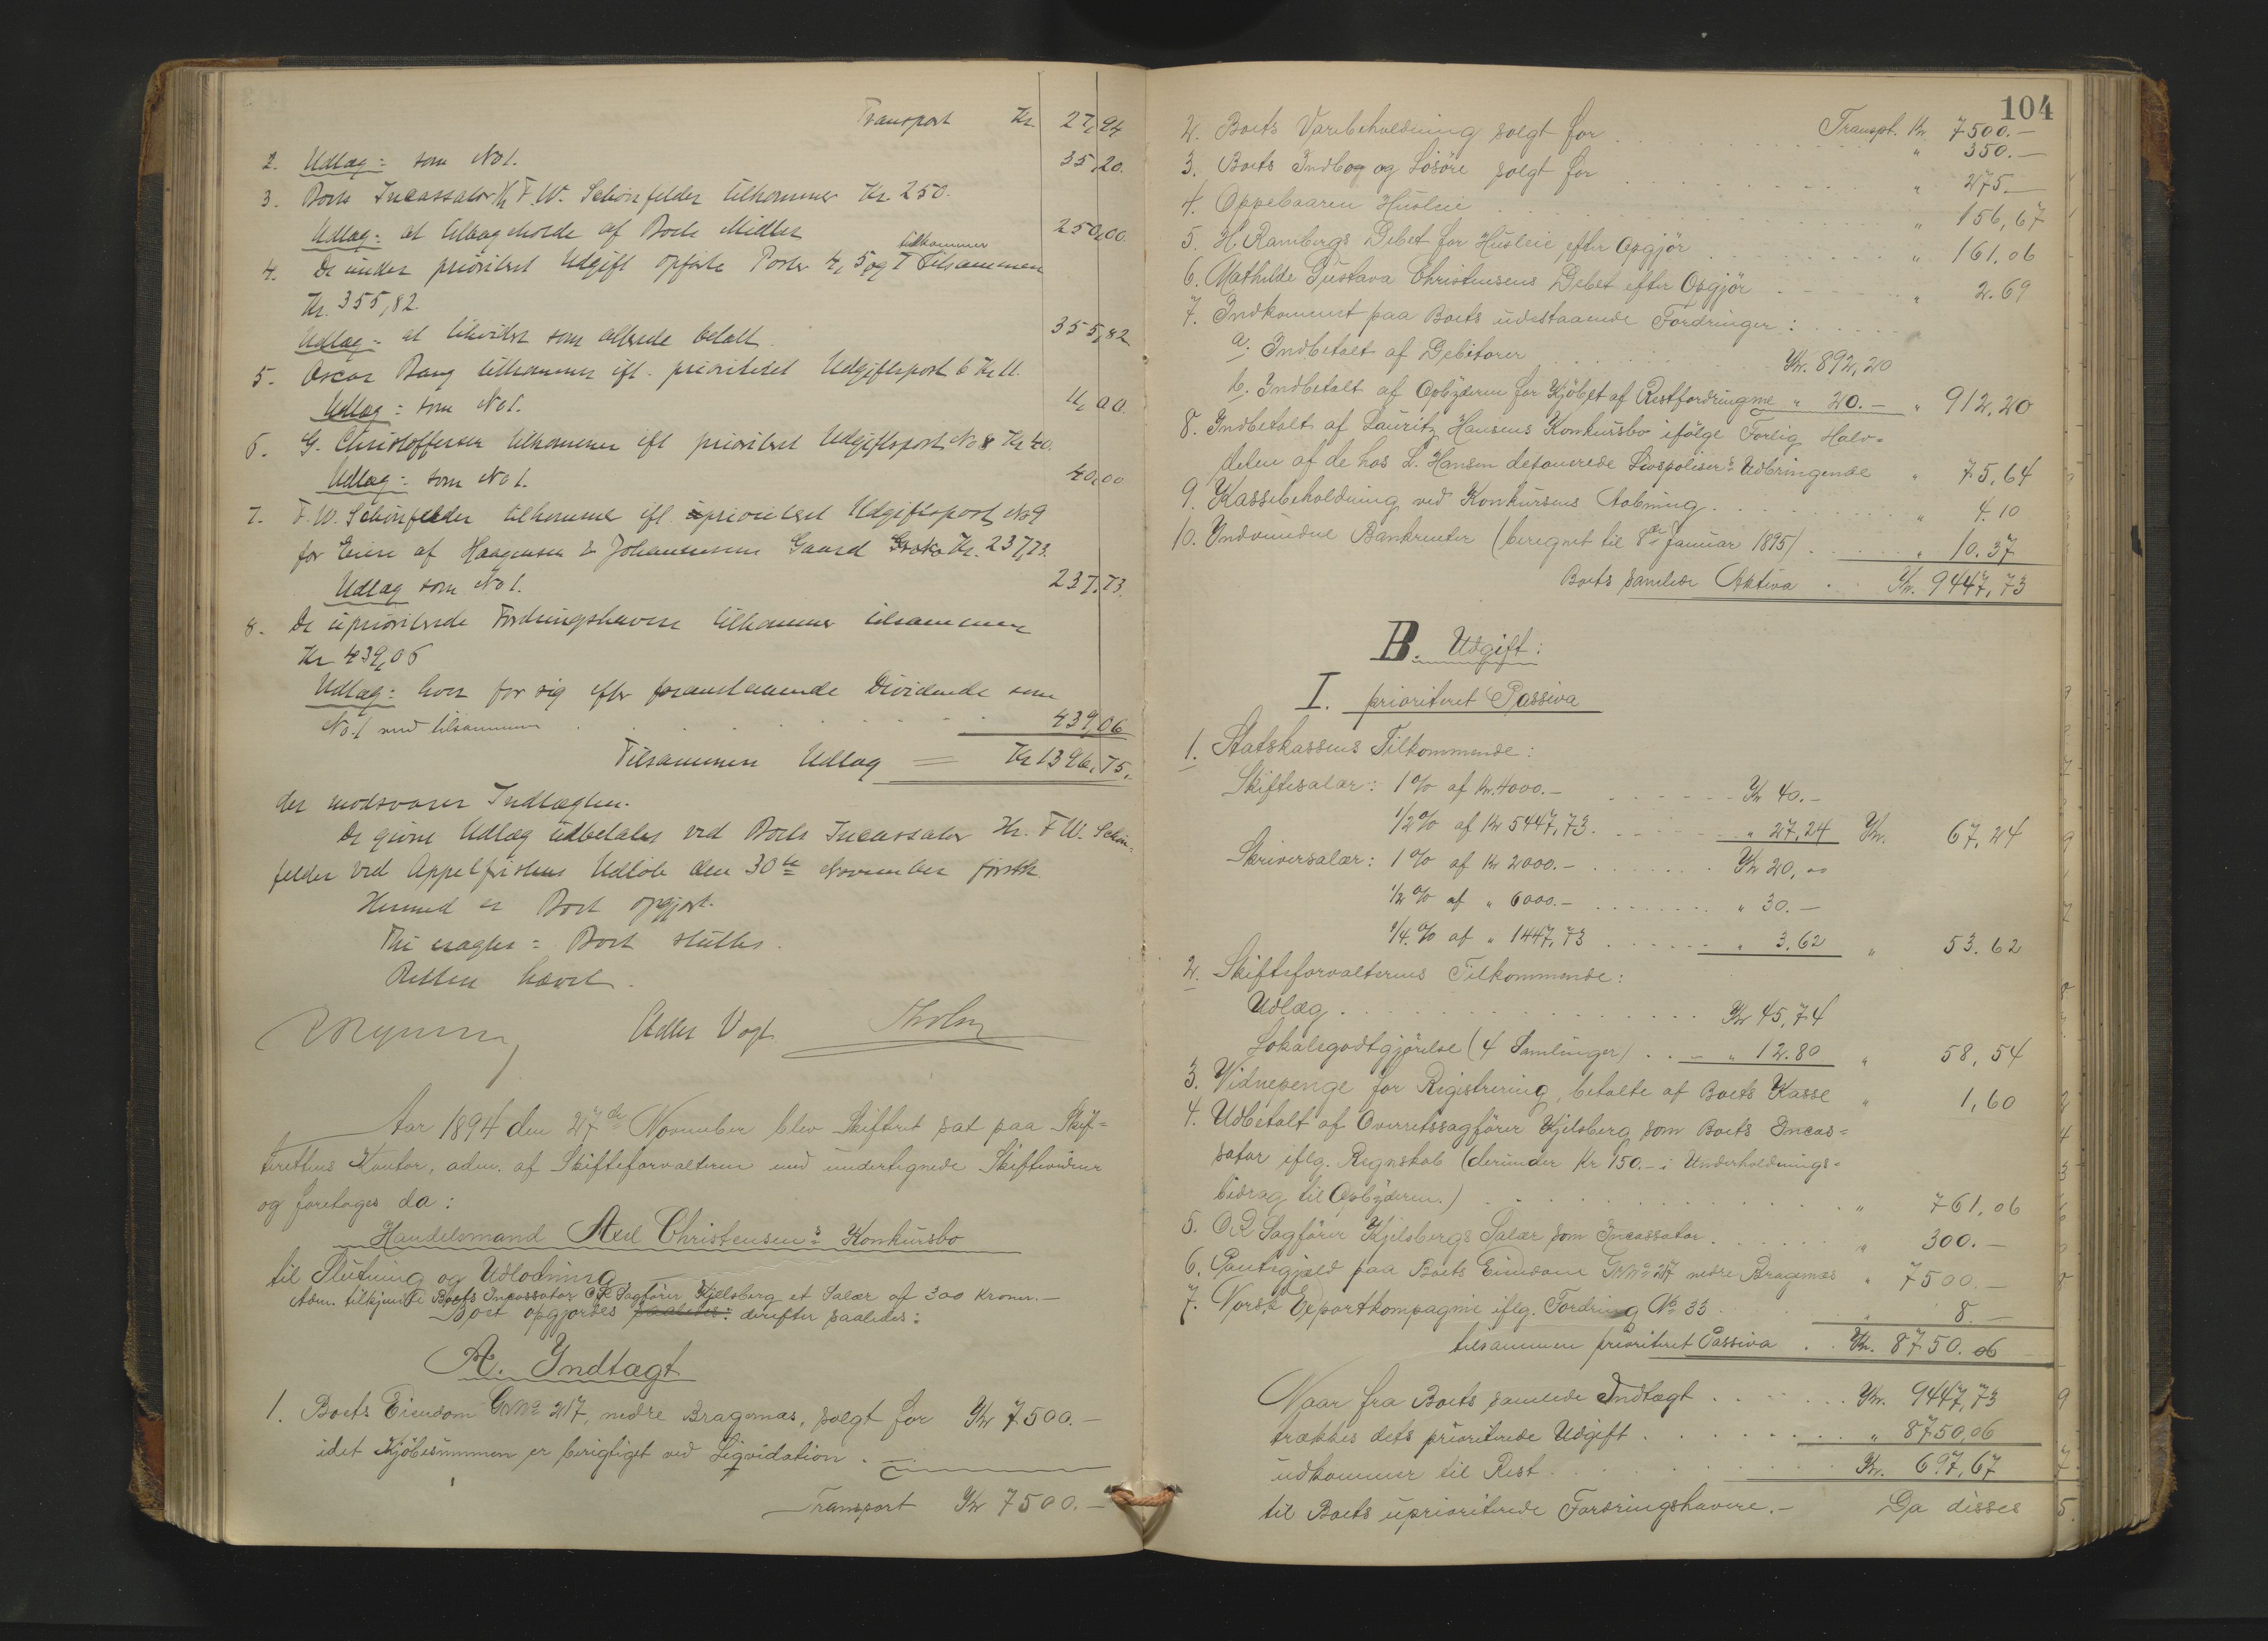 Transport Kr. 27,94
2. Udlæg: som No 1. 35,20.
3. Boets Incassator Hr F. W. Schönfelder tilkommer Kr. 250.
Udlæg: at tilbageholde af Boets Midler 250,00.
tilkommer
4. De under prioriteret Udgift opførte Poster 4, 5 og 7 tilsammen
Kr. 355,82
Udlæg: at likvidere som allerede betalt. 355,82
5. Oscar Bang tilkommer ifl. prioriteret Udgiftspost 6 Kr. 11.
Udlæg: som No 1. 11,00.
6. G. Christoffersen tilkommer ifl prioriteret Udgiftspost No 8 Kr 40.
Udlæg: som No 1. 40,00
7. F. W. Schönfelder tilkommer ifl prioriteret Udgiftspost No 9
for Eiere af Haagensen & Johannesens Gaard Kr. 237,73.
Udlæg som No 1. 237,73.
8. De uprioriterede Fordringshavere tilkommer tilsammen
Kr 439,06
Udlæg: hver for sig efter foranstaaende Dividende som
No. 1 med tilsammen 439,06
Tilsammen Udlæg = Kr 1396,75.
der modsvarer Indtægten.
De gjorte Udlæg udbetales ved Boets Incassator Hr. F W. Schön-
felder ved Appelfristens Udløb den 30te November førstk.
Hermed er Boet opgjort.
Thi eragtes: Boet sluttes.
Retten hævet.
Adler Vogt Tholm
Aar 1894 den 27de November blev Skifteret sat paa Skif-
terettens Kontor, adm. af Skifteforvalteren med undertegnede Skiftevidner
og foretoges da:
Handelsmand Axel Christensens Konkursbo
til Slutning og Udlodning
Adm. tilkjendte Boets Incassator O.R. Sagfører Kjelsberg et Salær af 300 Kroner.—
Boet opgjordes saaledes: derefter saaledes:
A. Indtægt
1. Boets Eiendom Gr No 217, nedre Bragernæs, solgt for Kr 7500.—
idet Kjöbesummen er berigtiget ved Liqvidation.
Transport Kr 7500.—
104
Transpt. Kr 7500.—
2. Boets Varebeholdning solgt for " 350.—
3. Boets Indbo og Lösöre solgt for " 275.—
4. Oppebaaren Husleie " 156,67
5. H. Rambergs Debet for Husleie efter Opgjör " 161.06
6. Mathilde Gustava Christensens Debet efter Opgjör " 2.69
7. Indkommet paa Boets udestaaende Fordringer:
a. Indbetalt af Debitorer Kr. 892,20
b. Indbetalt af Opbyderen for Kjöbet af Restfordringerne " 20.— " 912,20
8. Indbetalt af Lauritz Hansens Konkursbo ifölge Forlig Halv-
delen af de hos L. Hansen deponerede Livspolisers Udbringende " 75,64
9. Kassebeholdning ved Konkursens Aabning " 4.10
10. Indvundne Bankrenter (beregnet til 8de Januar 1895) " 10.37
Boets samlede Aktiva Kr. 9447,73
B. Udgift:
I. prioriteret Passiva
1. Statskassens Tilkommende:
Skiftesalær: 1% af Kr. 4000.— Kr 40.—
1/2% af Kr 5447,73. " 27,24 Kr. 67,24
Skriversalær: 1% af Kr 2000.— Kr 20,00
1/2% af " 6000.— " 30.—
1/4.% af " 1447,73 " 3.62 " 53.62
2. Skifteforvalterens Tilkommende:
Udlæg Kr 45,74
Lokalegodtgjörelse (4 Samlinger) " 12.80 " 58,54
3. Vidnepenge for Registrering, betalte af Boets Kasse " 1,60
4. Udbetalt af Overretssagförer Kjelsberg som Boets Incas-
sator iflg. Regnskab (derunder Kr 150.— i Underholdnings-
bidrag til Opbyderen.) " 761,06
5. O.R. Sagförer Kjelsbergs Salær som Incassator " 300.—
6. Pantegjæld paa Boets Eiendom Gr No 217 nedre Bragernæs " 7500.—
7. Norsk Exportkompagnie iflg. Fordring No 33 " 8.—
tilsammen prioriteret Passiva Kr. 8750.06
Naar fra Boets samlede Indtægt Kr. 9447,73
trækkes dets prioriterede Udgift " 8750,06
udkommer til Rest Kr. 697,67
til Boets uprioriterede Fordringshavere.— Da disses